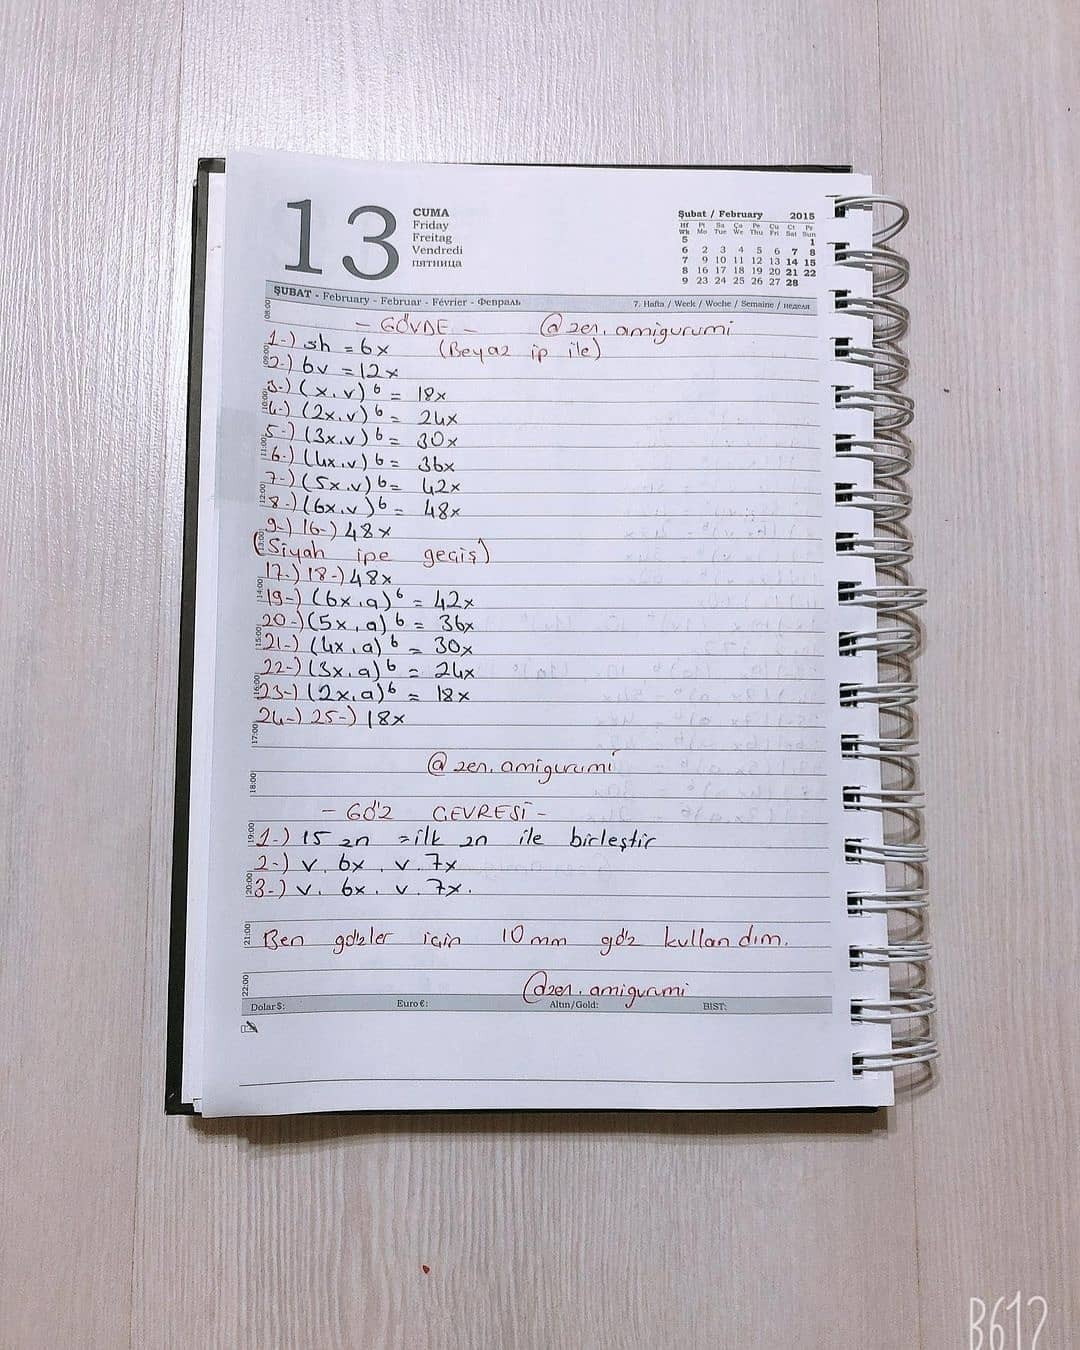 13
CUMA
Friday
Freitag
Vendredi
пятница
Şubat / February 2015
Hf Pt Sa Ça Pe Cu Ct Pz
Wk Mo Tue We Thu Fri Sat Sun
5 1
6 2 3 4 5 6 7 8
7 9 10 11 12 13 14 15
8 16 17 18 19 20 21 22
9 23 24 25 26 27 28
ŞUBAT - February - Februar - Février - Февраль 7. Hafta / Week / Woche / Semaine / неделя
08:00
- GÖVDE - @zen.amigurumi
1-) sh = 6x (Beyaz ip ile)
09:00
2-) 6v = 12x
3-) (x.v)6 = 18x
10:00
4-) (2x.v)6 = 24x
5-) (3x.v)6 = 30x
11:00
6-) (4x.v)6 = 36x
7-) (5x.v)6 = 42x
12:00
8-) (6x.v)6 = 48x
9-) 16-) 48x
13:00
(Siyah ipe geçiş)
17-) 18-) 48x
14:00
19-) (6x.a)6 = 42x
20-) (5x.a)6 = 36x
15:00
21-) (4x.a)6 = 30x
22-) (3x.a)6 = 24x
16:00
23-) (2x.a)6 = 18x
24-) 25-) 18x
17:00
@zen.amigurumi
18:00
- GÖZ ÇEVRESİ -
19:00
1-) 15 zn = ilk zn ile birleştir
2-) v. 6x. v. 7x
20:00
3-) v. 6x. v. 7x.
21:00
Ben gözler için 10 mm göz kullandım.
22:00
@zen.amigurumi
Dolar $: Euro €: Altın/Gold: BIST:
B612